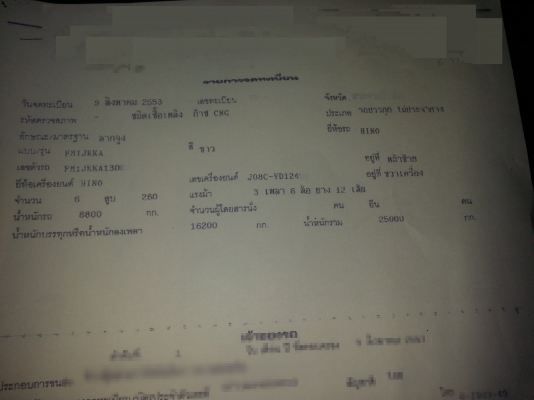 รายการจดทะเบียน
วันจดทะเบียน 9 สิงหาคม 2553 เลขทะเบียน จังหวัด
รหัสตรวจสภาพ - ชนิดเชื้อเพลิง ก๊าซ CNG ประเภท
ลักษณะ/มาตรฐาน ลากจูง ยี่ห้อรถ HINO
แบบ/รุ่น FM1JKKA สี ขาว
เลขตัวรถ FM1JKKA130 อยู่ที่
ยี่ห้อเครื่องยนต์ HINO เลขเครื่องยนต์ J08C-VD124 อยู่ที่ ขวาเครื่อง
จำนวน 6 สูบ 260 แรงม้า 3 เพลา 6 ล้อ ยาง 12 เส้น
น้ำหนักรถ 8800 กก. จำนวนผู้โดยสารนั่ง คน ยืน คน
น้ำหนักบรรทุกหรือน้ำหนักลงเพลา 16200 กก. น้ำหนักรวม 25000 กก.
เจ้าของรถ
ลำดับที่ 1 วัน เดือน ปี ที่ครอบครอง 9 สิงหาคม
ประกอบการขนส่ง
สัญชาติ ไทย
โทร